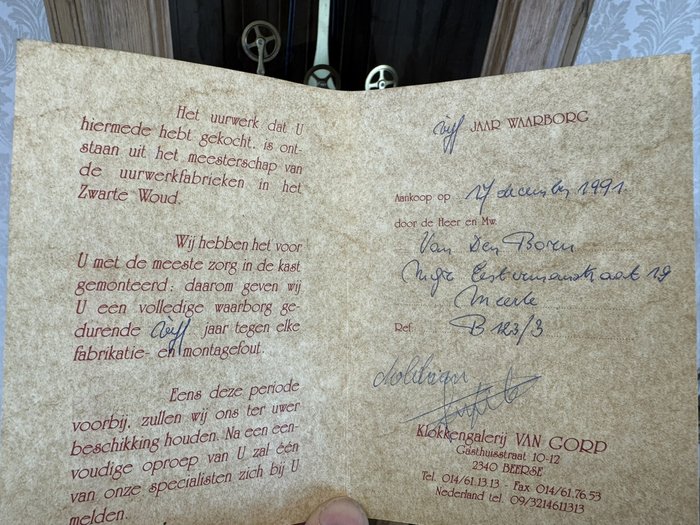 Het uurwerk dat U
hiermede hebt gekocht, is ont-
staan uit het meesterschap van
de uurwerkfabrieken in het
Zwarte Woud.
Wij hebben het voor
U met de meeste zorg in de kast
gemonteerd; daarom geven wij
U een volledige waarborg ge-
durende vijf jaar tegen elke
fabrikatie- en montagefout.
Eens deze periode
voorbij, zullen wij ons ter uwer
beschikking houden. Na een een-
voudige oproep van U zal één
van onze specialisten zich bij U
melden.
vijf JAAR WAARBORG
Aankoop op 17 december 1991
door de Heer en Mw.
Van Den Boren
Mgr Eestermansstraat 19
Meerle
Ref. B 123/3
Klokkengalerij VAN GORP
Gasthuisstraat 10-12
2340 BEERSE
Tel. 014/61.13.13 - Fax 014/61.76.53
Nederland tel. 09/3214611313